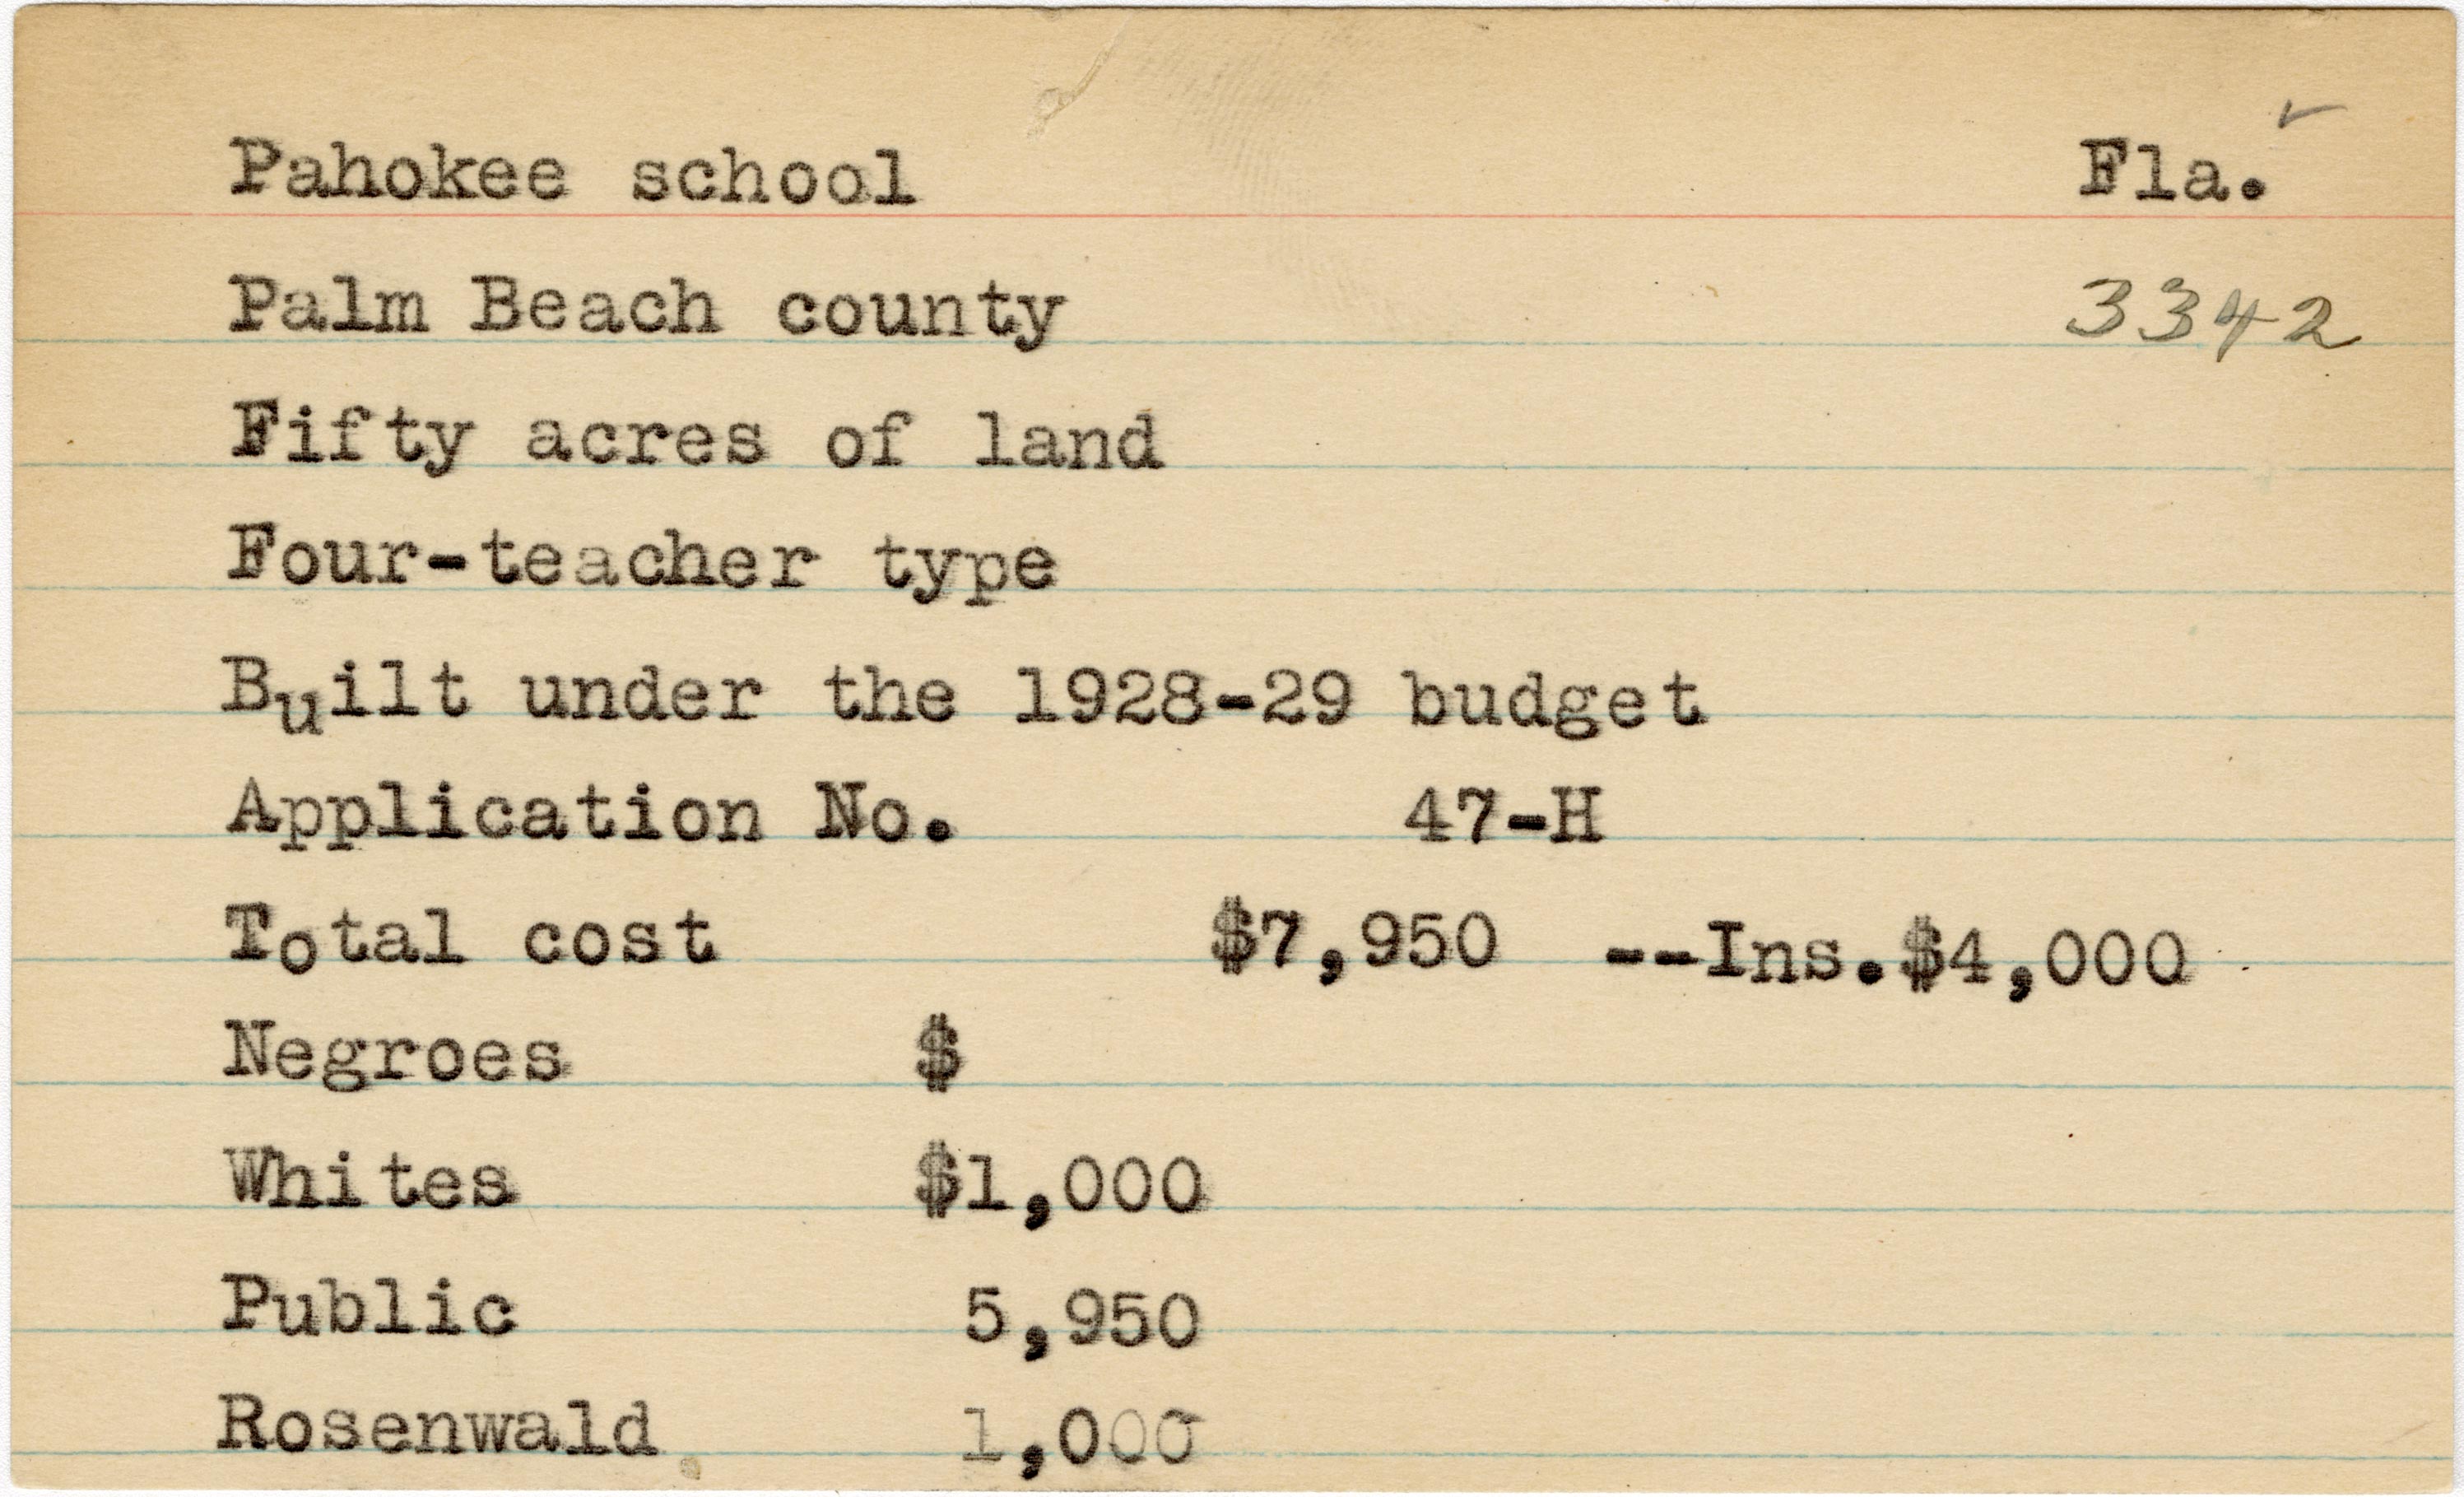 Pahokee school Fla.
Palm Beach county 3342
Fifty acres of land
Four-teacher type
Built under the 1928-29 budget
Application No. 47-H
Total cost $7,950 --Ins.$4,000
Negroes $
Whites $1,000
Public 5,950
Rosenwald 1,000